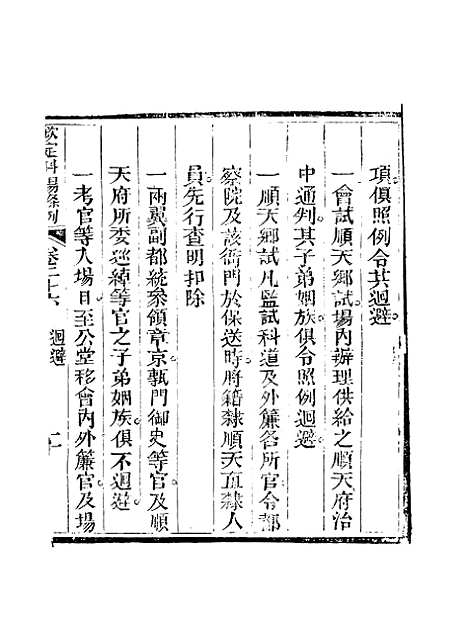 項俱照例令其迴避
一會試順天鄉試場內辦理供給之順天府治
中通判其子弟姻族俱令照例迴避
一順天鄉試凡監試科道及外簾各所官令都
察院及該衙門於保送時將籍隸順天直隸人
員先行查明扣除
一兩翼副都統叅領章京甎門御史等官及順
天府所委廵綽等官之子弟姻族俱不迴避
一考官等入塲日至公堂移會內外簾官及場
欽定科場條例 卷二十六 迴避 二